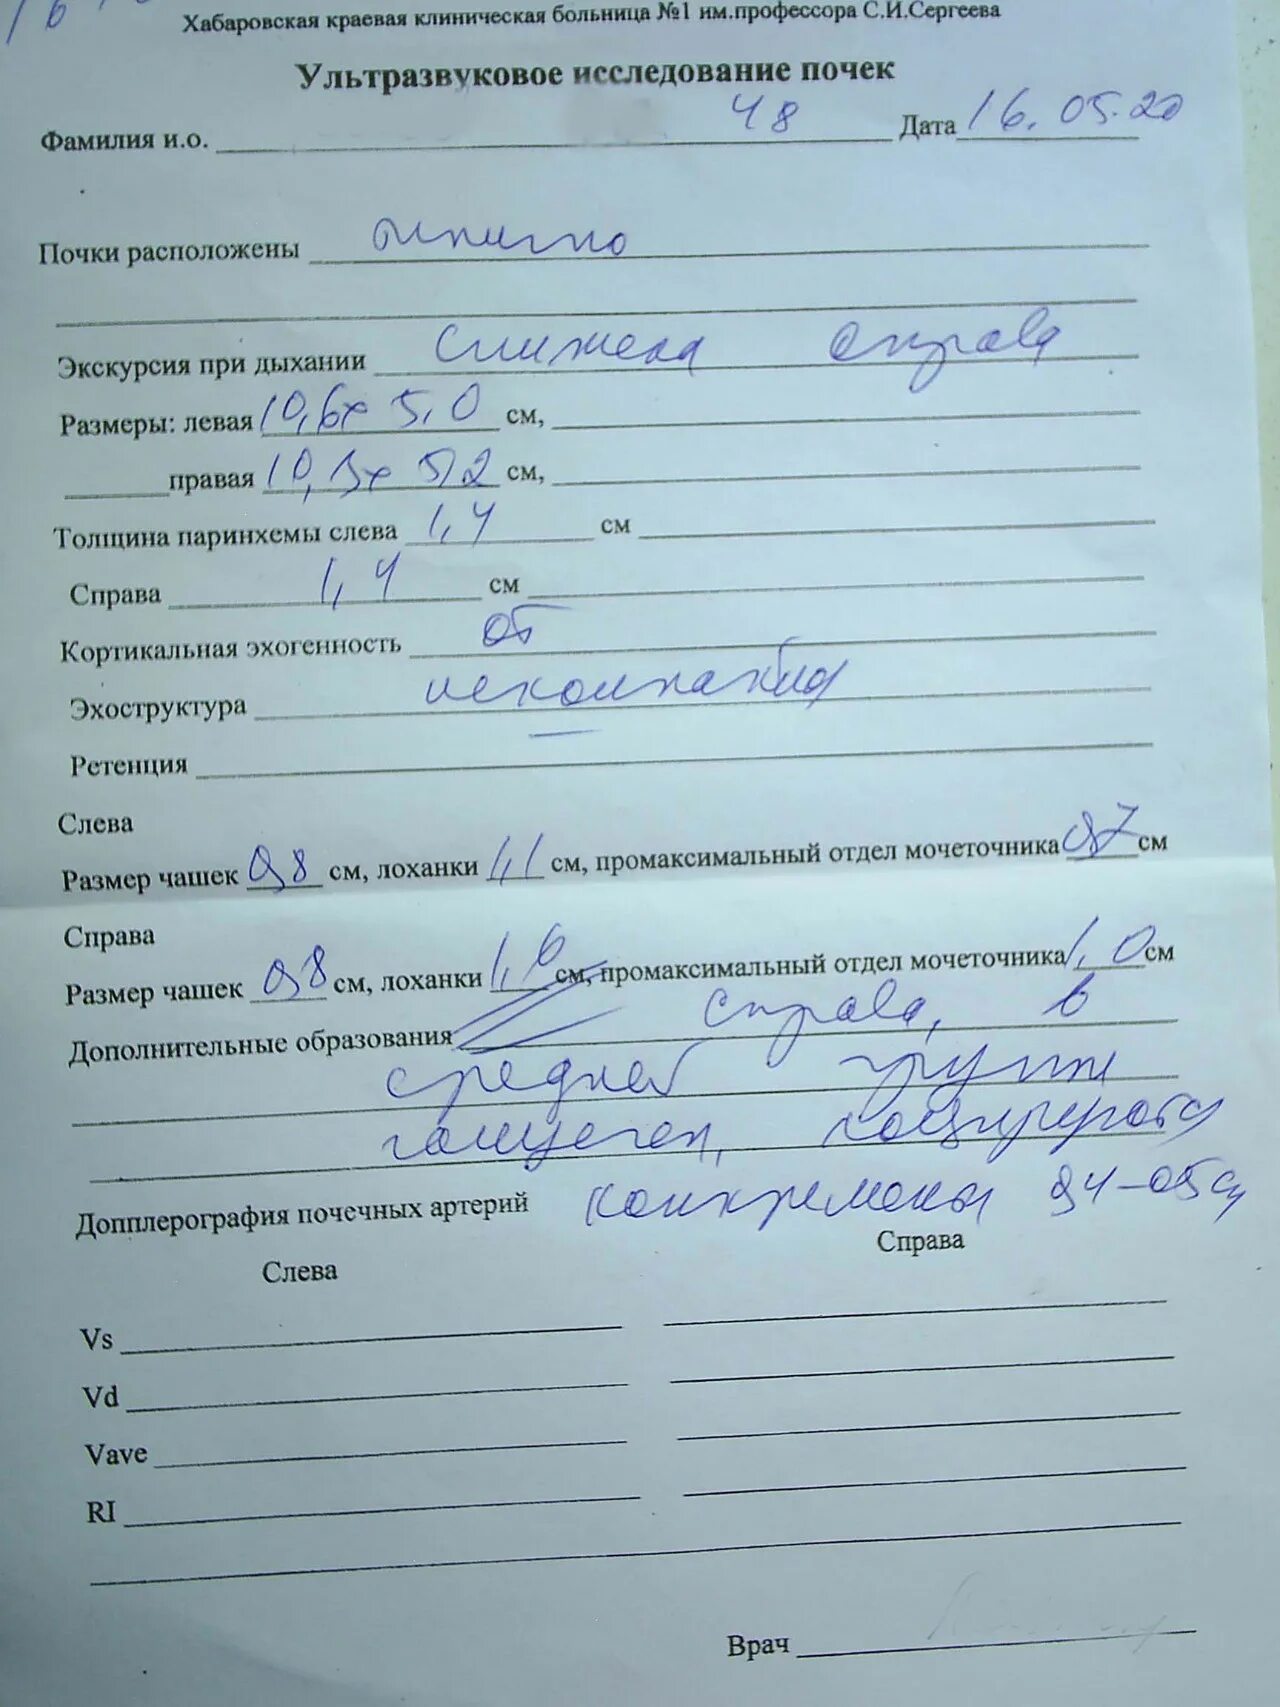 Хабаровская краевая клиническая больница №1 им.профессора С.И.Сергеева
Ультразвуковое исследование почек
Фамилия и.о. 48 Дата 16.05.20
Почки расположены типично
Экскурсия при дыхании снижена справа
Размеры: левая 10,6х 5,0 см,
правая 10,3х 5,2 см,
Толщина паринхемы слева 1,4 см
Справа 1,4 см
Кортикальная эхогенность об
Эхоструктура
Ретенция
Слева
Размер чашек 0,8 см, лоханки 1,1 см, промаксимальный отдел мочеточника 0,7 см
Справа
Размер чашек 0,8 см, лоханки 1,6 см, промаксимальный отдел мочеточника 1,0 см
Дополнительные образования справа, в
средней группе
чашечек, лоцируются
Допплерография почечных артерий конкременты 0,4-0,5 см
Слева Справа
Vs
Vd
Vave
RI
Врач